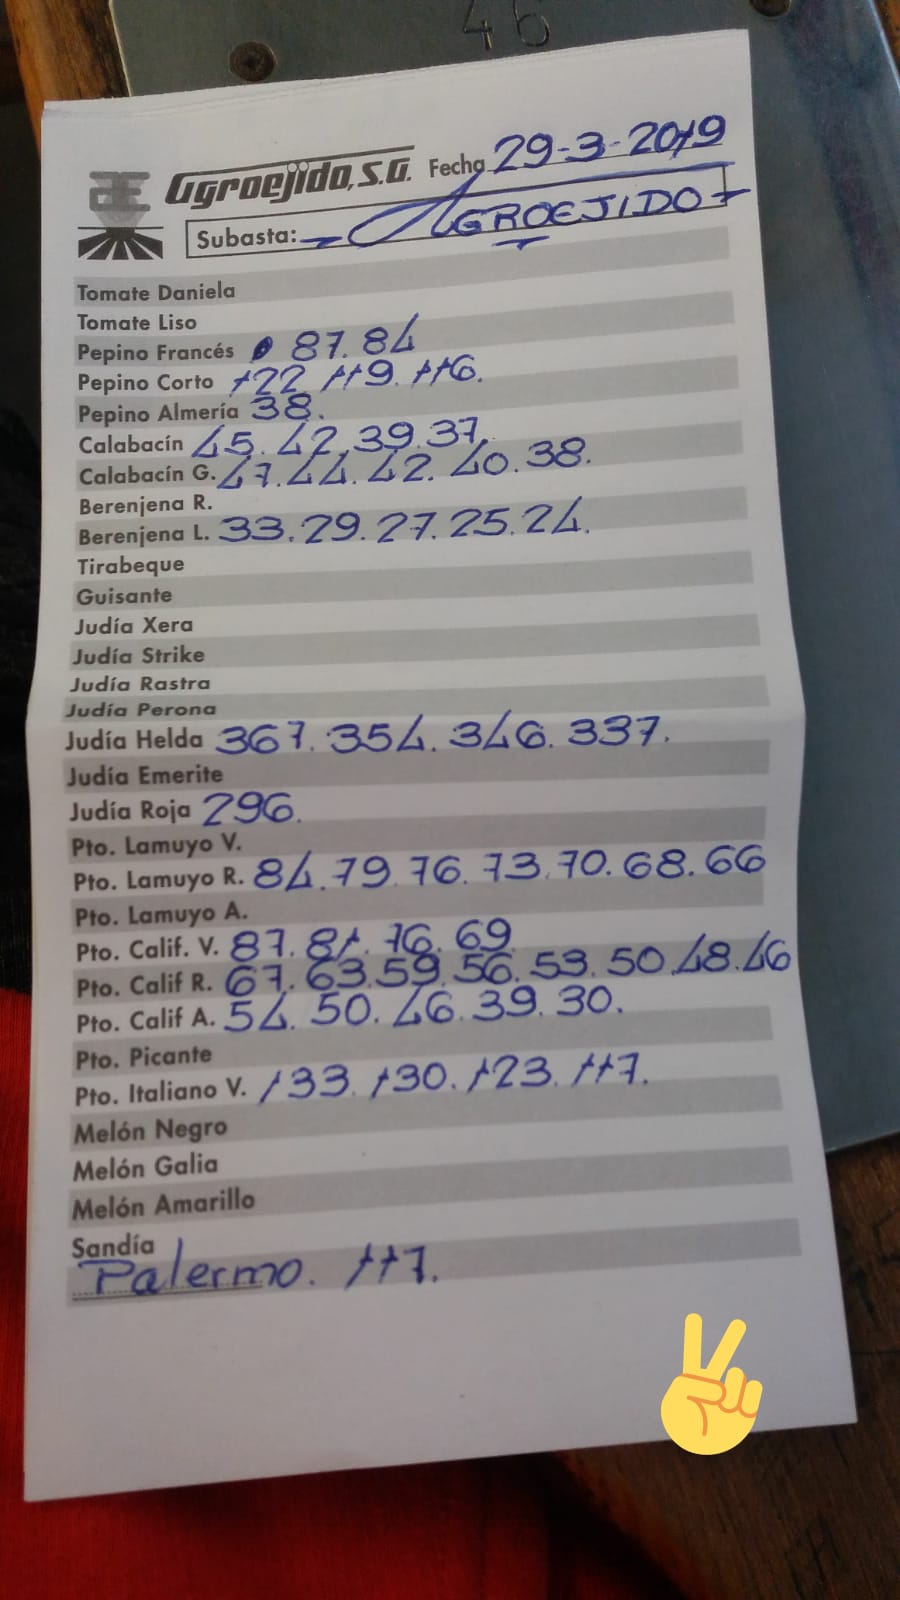 46
Agroejido, S.A. Fecha 29-3-2019
Subasta: AGROEJIDO
Tomate Daniela
Tomate Liso
Pepino Francés 87. 84
Pepino Corto 122 119. 116.
Pepino Almería 38.
Calabacín 45. 42. 39. 37.
Calabacín G. 47. 44. 42. 40. 38.
Berenjena R.
Berenjena L. 33. 29. 27. 25. 24.
Tirabeque
Guisante
Judía Xera
Judía Strike
Judía Rastra
Judía Perona
Judía Helda 367. 354. 346. 337.
Judía Emerite
Judía Roja 296.
Pto. Lamuyo V.
Pto. Lamuyo R. 84. 79. 76. 73. 70. 68. 66
Pto. Lamuyo A.
Pto. Calif. V. 87. 81. 76. 69
Pto. Calif R. 67. 63. 59. 56. 53. 50. 48. 46
Pto. Calif A. 54. 50. 46. 39. 30.
Pto. Picante
Pto. Italiano V. 133. 130. 123. 117.
Melón Negro
Melón Galia
Melón Amarillo
Sandía
Palermo. 117.